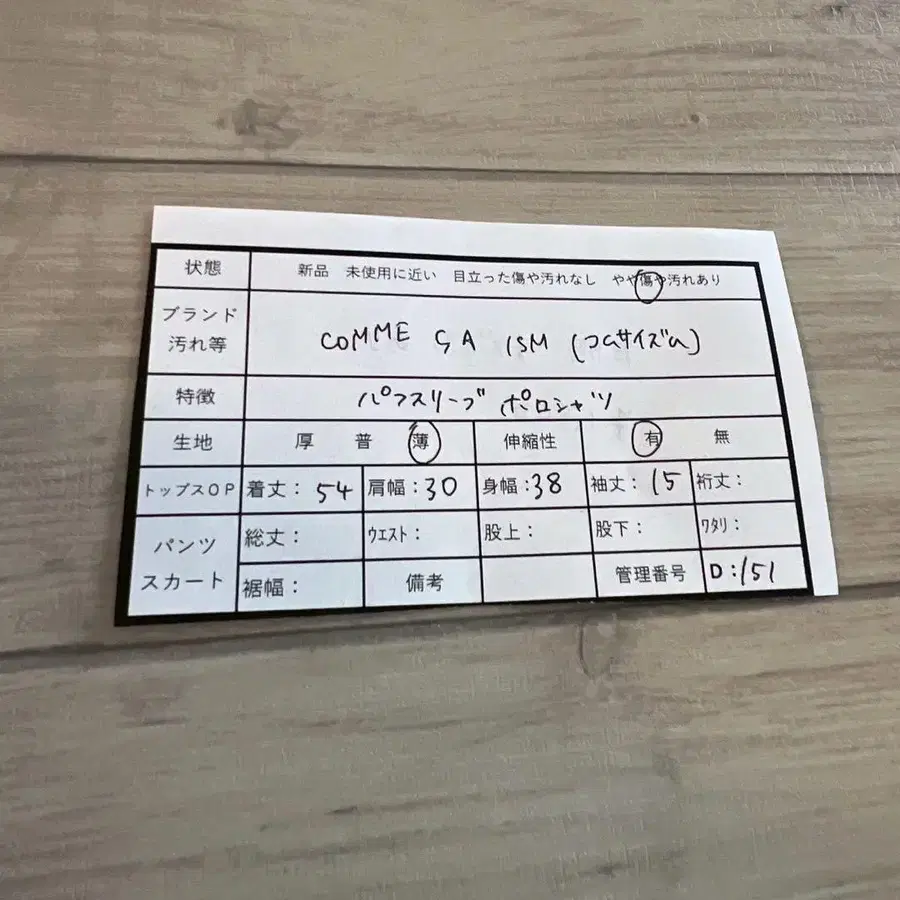 状態 新品 未使用に近い 目立った傷や汚れなし やや傷や汚れあり
ブランド
汚れ等
COMME ÇA ISM (コムサイズム)
特徴 パフスリーブ ポロシャツ
生地 厚 普 薄 伸縮性 有 無
トップスOP 着丈: 54 肩幅: 30 身幅: 38 袖丈: 15 裄丈:
パンツ
スカート
総丈: ウエスト: 股上: 股下: ワタリ:
裾幅: 備考 管理番号 D:151